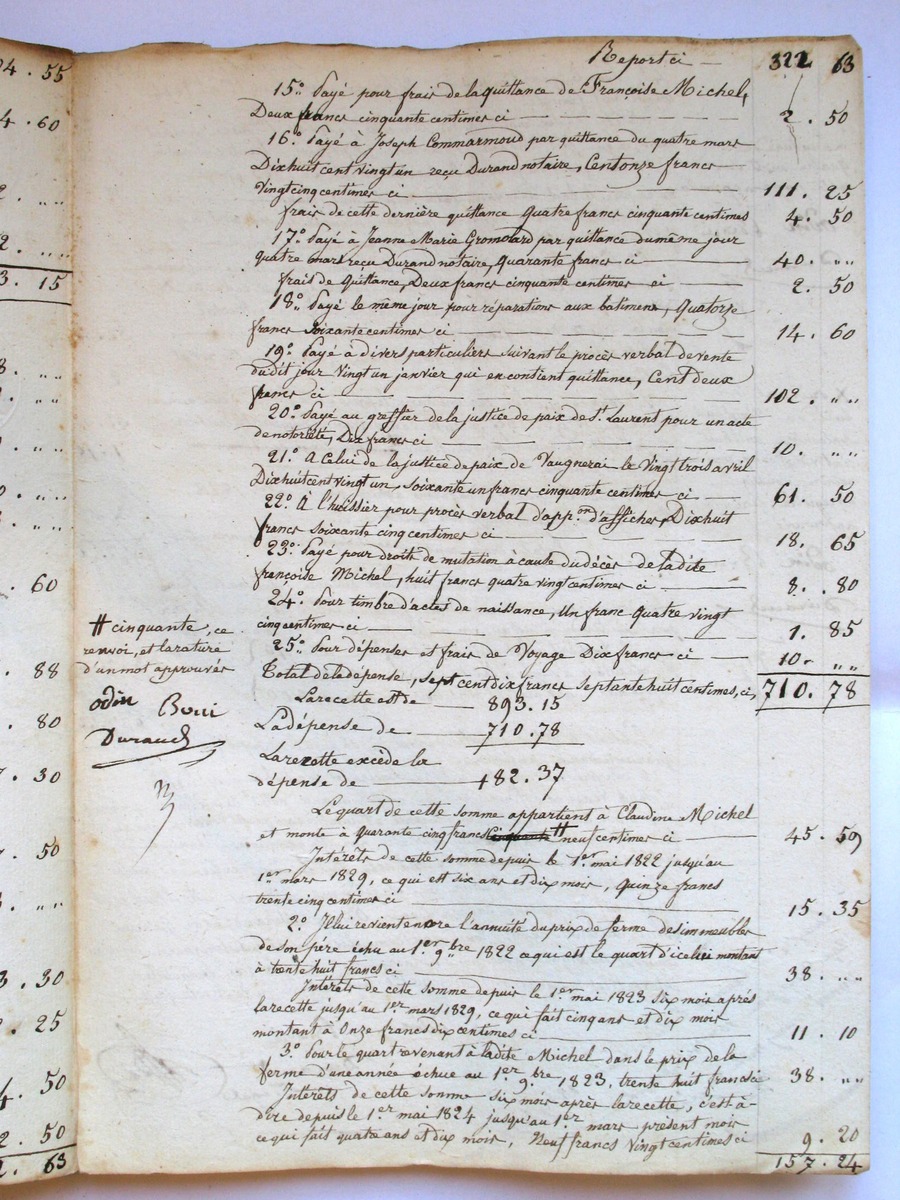 4. 55
4. 60
2. „ „
2. „ „
3. 15
8. „ „
. „ „
. „ „
0. „ „
. „ „
. 60
. 88
. 80
7. 30
. 50
. „ „
3. 30
2. 25
4. 50
2. 50
2. 63
Report ci — 322 63
15.° Payé pour frais de la quittance de Françoise Michel,
Deux francs cinquante centimes ci — 2. 50
16.° Payé à Joseph Commarmoud par quittance du quatre mars
Dix huit cent vingt un reçu Durand notaire, Cent onze francs
Vingt cinq centimes ci — 111. 25
frais de cette dernière quittance Quatre francs cinquante centimes 4. 50
17.° Payé à Jeanne Marie Gromolard par quittance du même jour
quatre mars reçu Durand notaire, Quarante francs ci — 40. „ „
frais de Quittance, Deux francs cinquante centimes ci — 2. 50
18.° Payé le même jour pour réparations aux batimens, Quatorze
francs Soixante centimes ci — 14. 60
19.° Payé à divers particuliers suivant le procès verbal de vente
du dit jour Vingt un janvier qui en contient quittance, Cent deux
francs ci — 102. „ „
20.° Payé au greffier de la justice de paix de St. Laurent pour un acte
de notoriété, Dix francs ci — 10. „ „
21.° A Celui de la justice de paix de Vaugnerai le Vingt trois avril
Dix huit cent vingt un, Soixante un francs cinquante centimes ci — 61. 50
22.° A l'huissier pour procès verbal d'app.on d'affiches, Dix huit
francs soixante cinq centimes ci — 18. 65
23.° Payé pour droits de mutation à cause du décès de la dite
françoise Michel, huit francs quatre vingt centimes ci — 8. 80
24.° Pour timbre d'actes de naissance, Un franc Quatre vingt
cinq centimes ci — 1. 85
25.° Pour dépenses et frais de Voyage Dix francs ci — 10. „ „
Total de la dépense, Sept cent dix francs septante huit centimes, ci, 710. 78
# cinquante, ce
renvoi, et la rature
d'un mot approuvés
odin Boui
Durand
La recette est de — 893. 15
La dépense de — 710. 78
La recette excède la
dépense de — 182. 37
Le quart de cette somme appartient à Claudine Michel
et monte à quarante cinq francs # neuf centimes ci — 45. 59
Intérêts de cette somme depuis le 1.er mai 1822 jusqu'au
1.er mars 1829, ce qui est six ans et dix mois, Quinze francs
trente cinq centimes ci — 15. 35
2.° Il lui revient encore l'annuité du prix de ferme des immeubles
de son père échu au 1.er 9.bre 1822 ce qui est le quart d'icelui montant
à trente huit francs ci — 38. „ „
Intérêts de cette somme depuis le 1.er mai 1823 six mois après
la recette jusqu'au 1.er mars 1829, ce qui fait cinq ans et dix mois
montant à Onze francs dix centimes ci — 11. 10
3.° Pour le quart revenant à ladite Michel dans le prix de la
ferme d'une année échue au 1.er 9.bre 1823, trente huit francs ci 38. „ „
Intérêts de cette somme six mois après la recette, c'est-à-
dire depuis le 1.er mai 1824 jusqu'au 1.er mars présent mois
ce qui fait quatre ans et dix mois, Neuf francs Vingt centimes ci 9. 20
157. 24